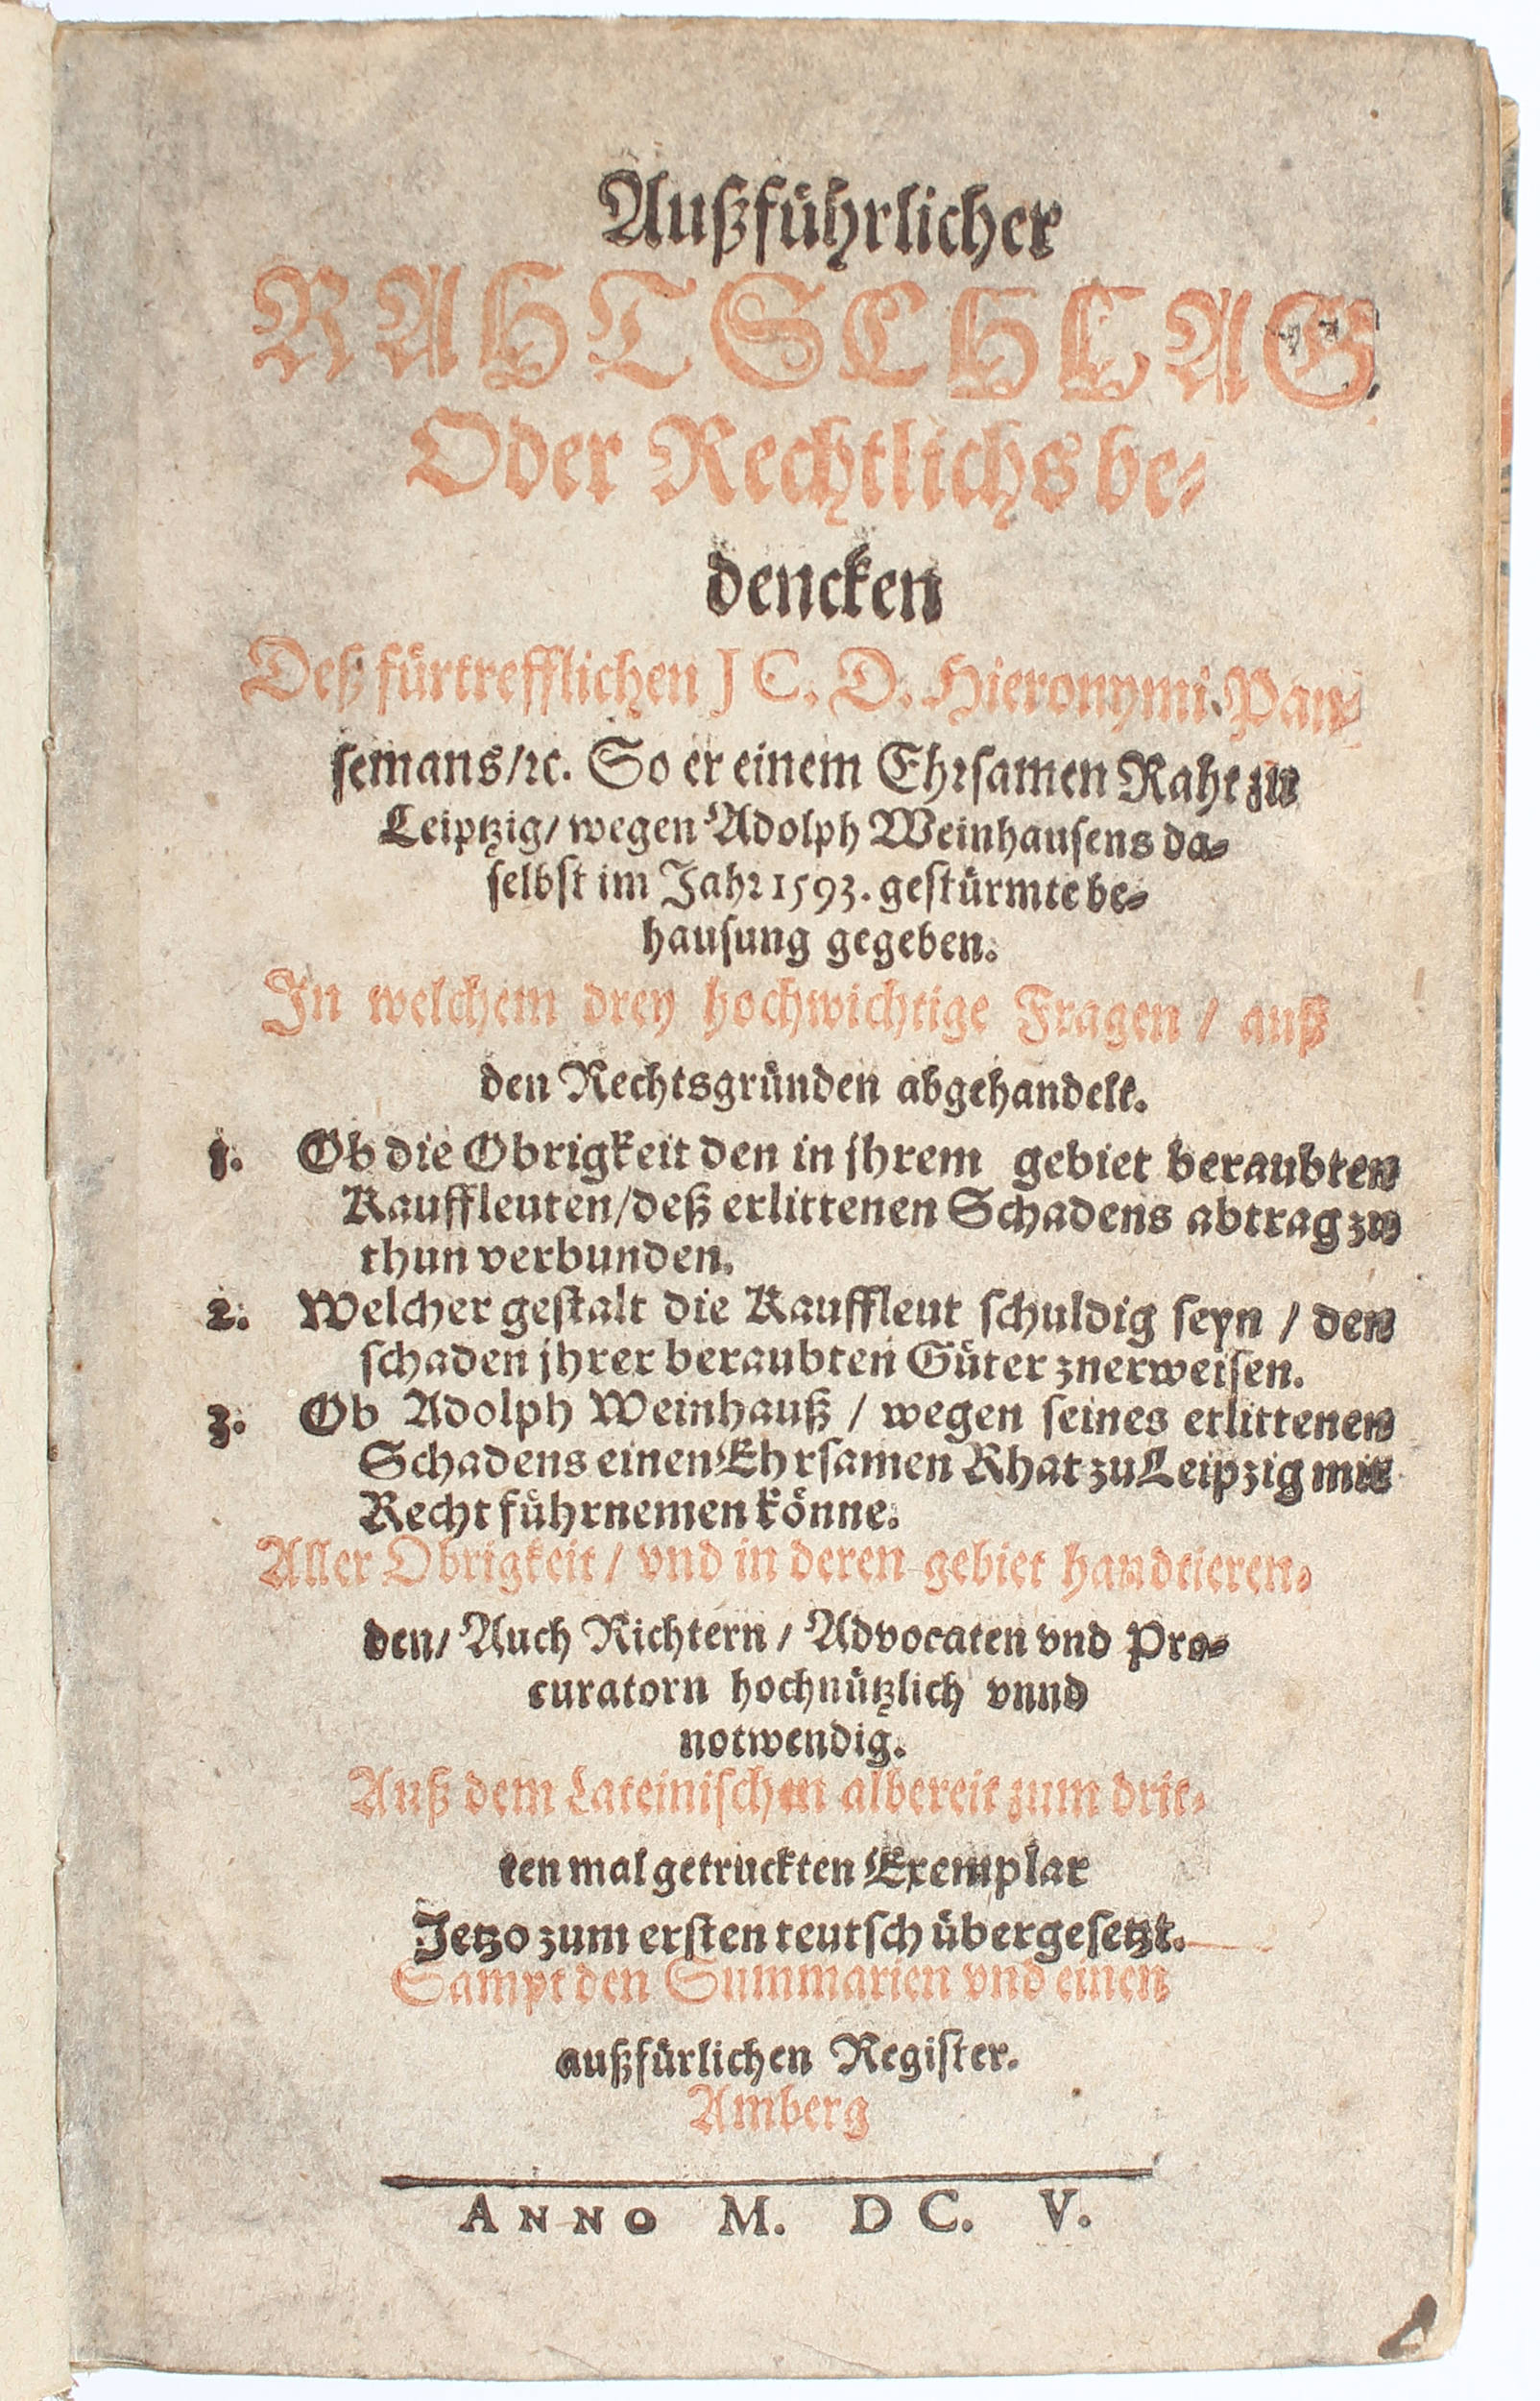 Außführlicher
RAHTSCHLAG
Oder Rechtlichs be-
dencken
Deß fürtrefflichen JC. D. Hieronymi Pan-
semans/ꝛc. So er einem Ehrsamen Raht zu
Leiptzig/ wegen Adolph Weinhausens da-
selbst im Jahr 1593. gestürmte be-
hausung gegeben.
In welchem drey hochwichtige Fragen / auß
den Rechtsgründen abgehandelt.
1. Ob die Obrigkeit den in jhrem gebiet beraubten
Kauffleuten/deß erlittenen Schadens abtrag zu
thun verbunden.
2. Welcher gestalt die Kauffleut schuldig seyn / den
schaden jhrer beraubten Güter znerweisen.
3. Ob Adolph Weinhauß / wegen seines erlittenen
Schadens einen Ehrsamen Rhat zu Leipzig mit
Recht führnemen könne.
Aller Obrigkeit / vnd in deren gebiet handtieren-
den/ Auch Richtern / Advocaten vnd Pro-
curatorn hochnützlich vnnd
notwendig.
Auß dem Lateinischen albereit zum drit-
ten mal getruckten Exemplar
Jetzo zum ersten teutsch übergesetzt.
Sampt den Summarien vnd einen
außfürlichen Register.
Amberg
ANNO M. DC. V.